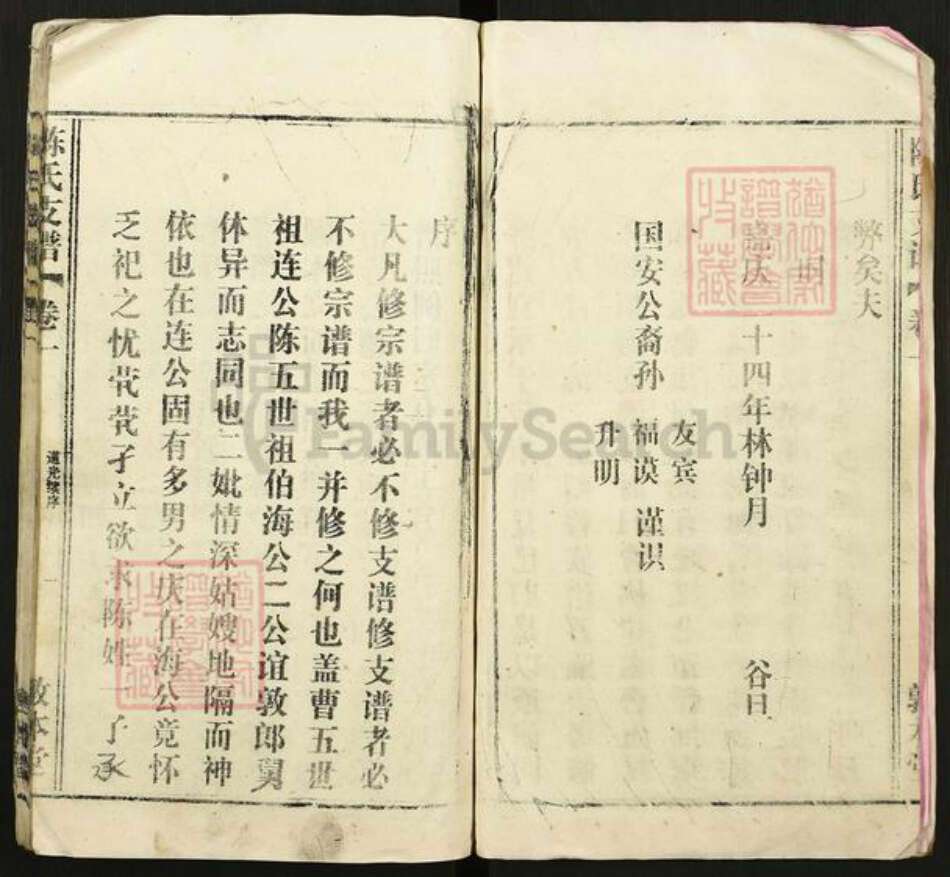 弊矣夫
时
嘉庆二十四年林钟月 谷旦
国安公裔孙 友宾 福谟 升明 谨识
敦本堂
序
大凡修宗谱者必不修支谱修支谱者必
不修宗谱而我一并修之何也盖曹五世
祖连公陈五世祖伯海公二公谊敦郎舅
休异而志同也二妣情深姑嫂地隔而神
依也在连公固有多男之庆在海公竟怀
乏祀之忧茕茕孑立欲求陈姓一子承
陈氏支谱 卷一
道光续序
一
敦本堂
FamilySearch